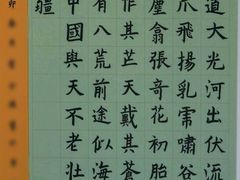 道大光河出伏流
爪飛揚乳虎嘯谷
塵翕張奇花初胎
作其芒天戴其蒼
有八荒前途似海
中國與天不老壯
疆